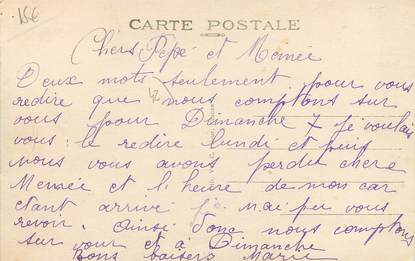 15€
CARTE POSTALE
Chers Pépé et Mémée
Deux mots seulement pour vous
redire que nous comptons sur
vous pour Dimanche 7 je voulais
vous le redire lundi et puis
nous vous avons perdu chere
Mémée et l'heure de mon car
etant arrivé je n'ai pu vous
revoir. Ainsi donc nous comptons
sur vous et à Dimanche
Bons baisers Marie